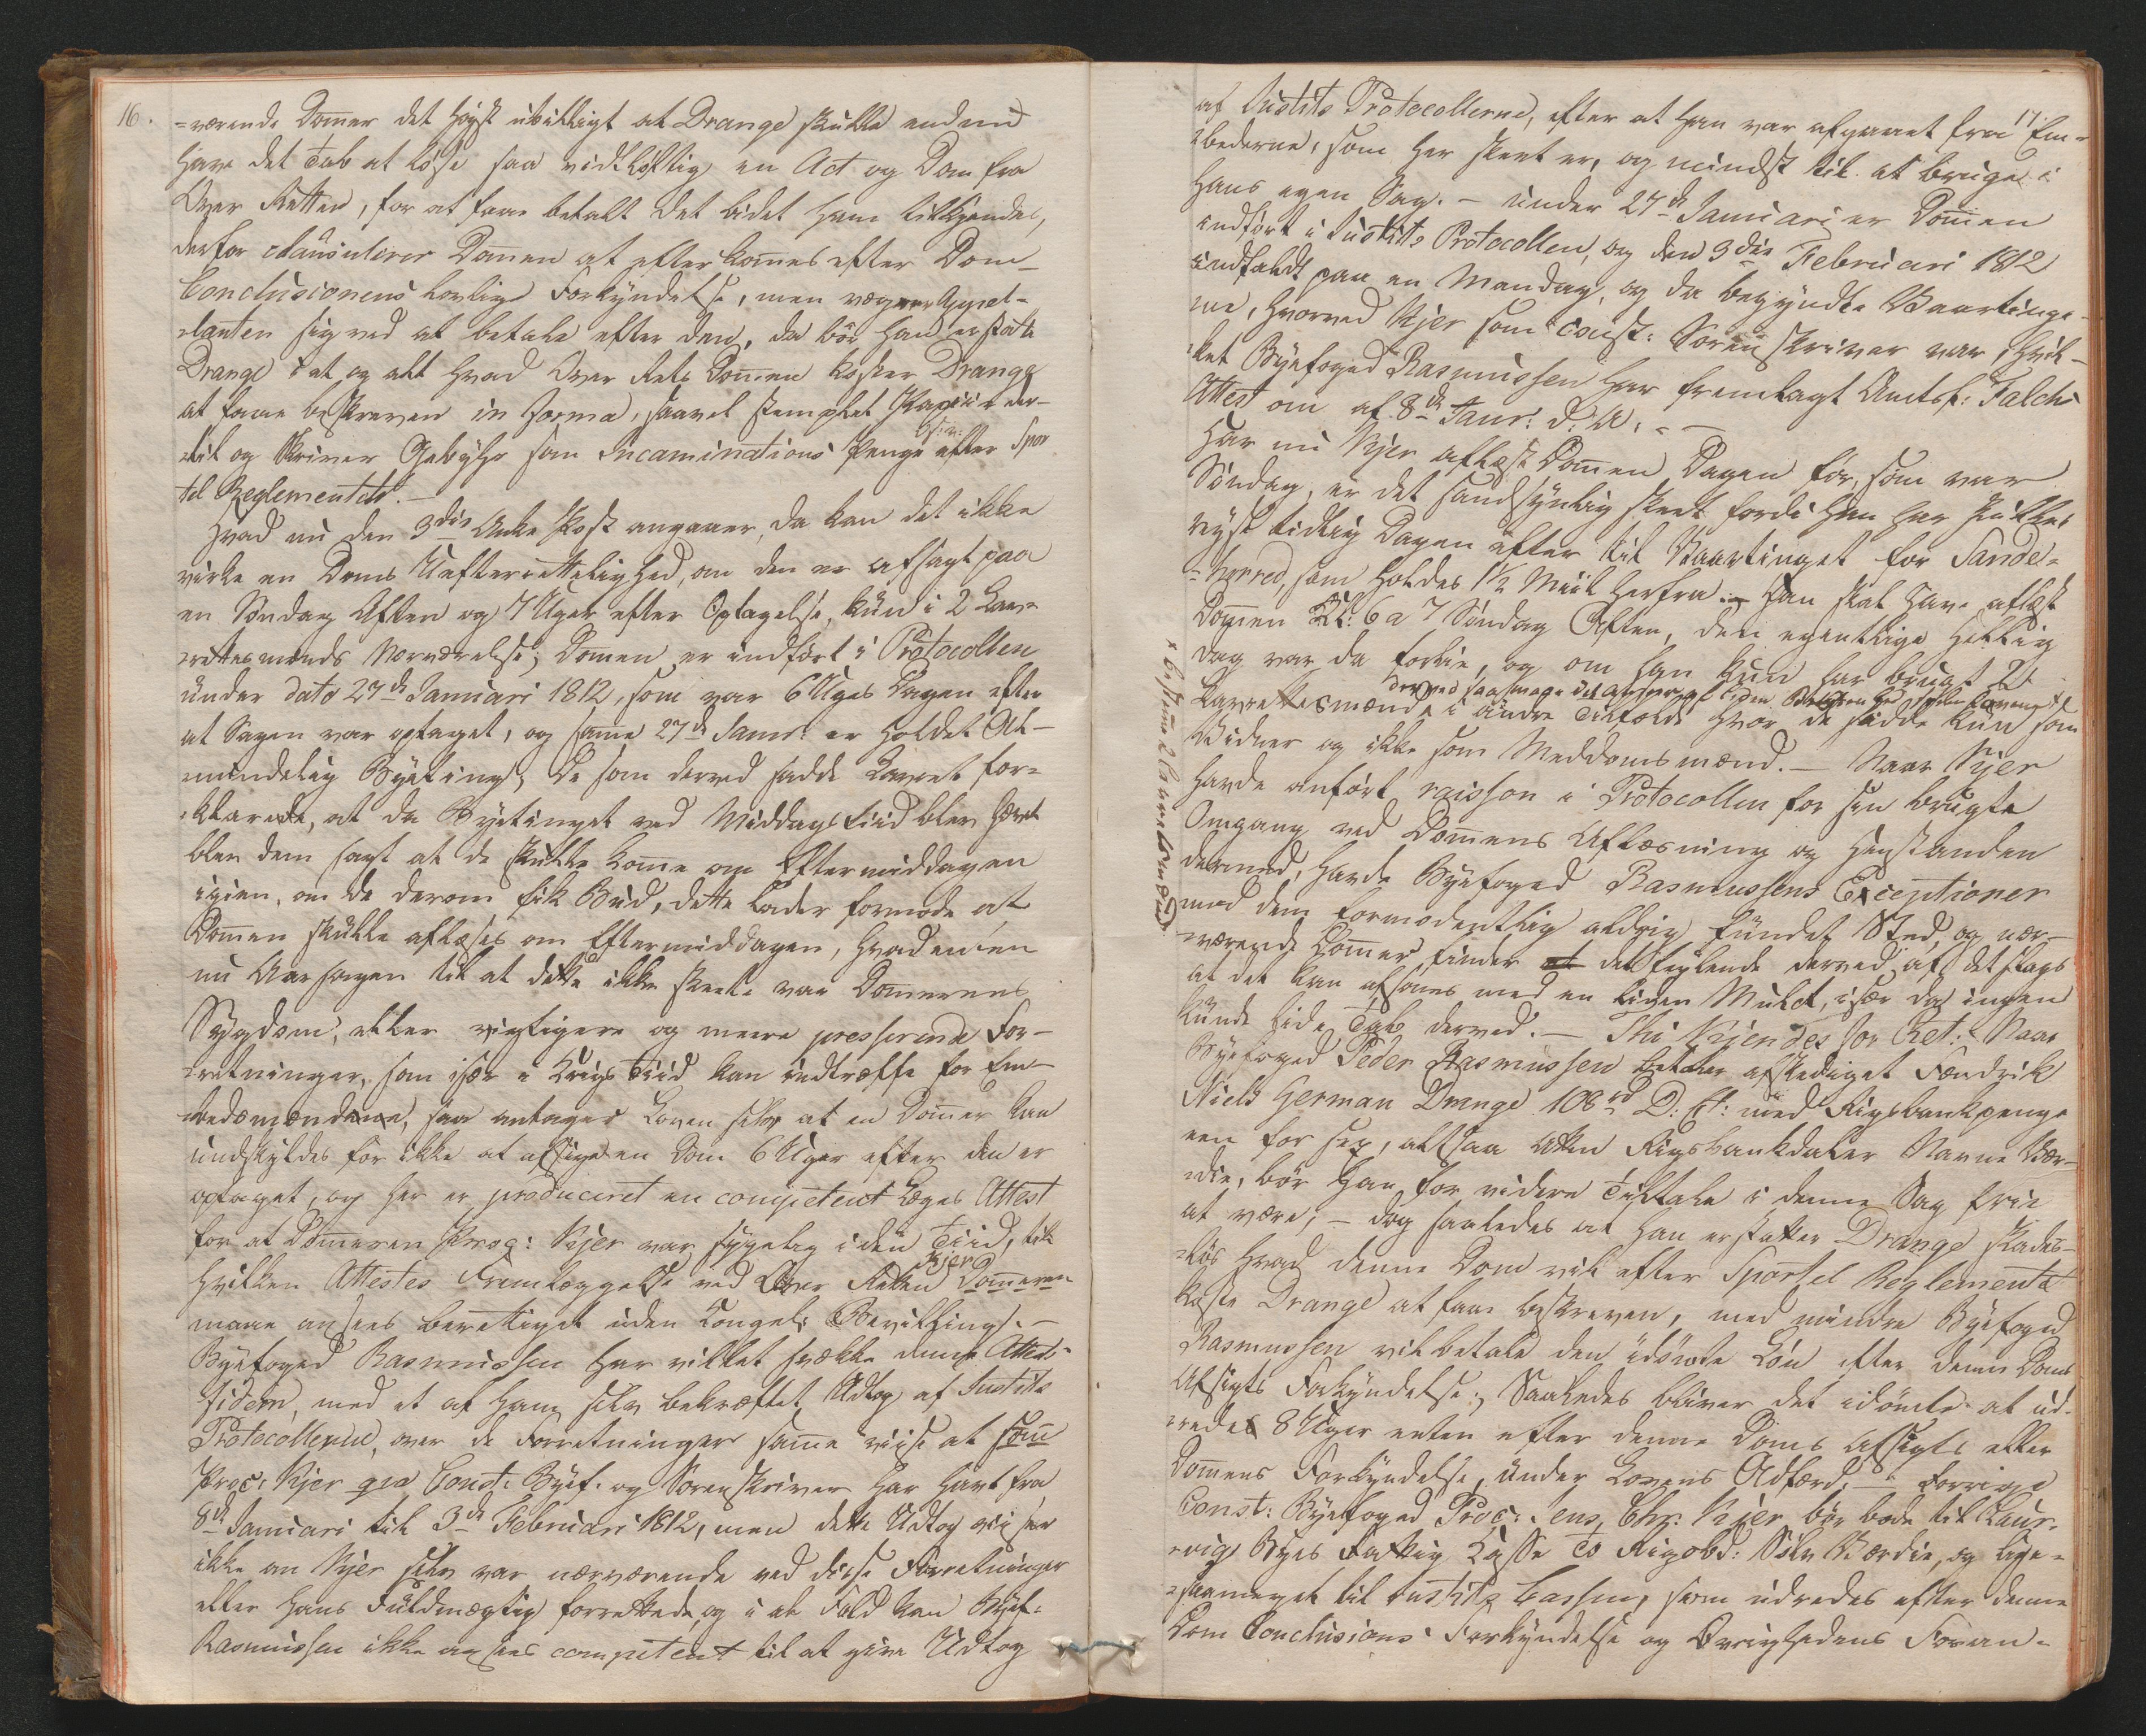 16.
=værende Dommer det høyst ubilligt at Drange skulle endnu
have det Tab at løse saa vidtløftig en Act og Dom fra
Over Retten, for at faae betalt det lidet ham tilkjendes,
derfor clausulerer Dommen at efterkommes efter Dom-
Conclusionens lovlige Forkyndelse, men vægrer Appel-
lanten sig ved at betale efter den, da bør han erstatte
Drange i at og alt hvad Over Rets Dommen koster Drange
at faae beskreven in Forma, saavel stemplet Papiir
og Skriver Gebyhr som Incaminations Penge efter Spor
tel Reglementet.-
Hvad nu den 3die Anke Post angaaer, da kan det ikke
virke en Doms Uefterrettelighed, om den er afsagt paa
en Søndag Aften og 7 Uger efter Optagelse, kun i 2 Lau-
rettesmænds Nærværelse; Dommen er indført i Protocollen
under dato 27de Januari 1812, som var 6 Uges Dagen efter
at Sagen var optaget, og samme 27de Januar er holdet Al-
mindelig Byeting, De som derved sadde Lauret for-
klarede, at da Byetinget ved Middags Tiid blev hævet
blev dem sagt at de skulle komme om Eftermiddagen
igien, om de derom fik Bud, dette lader formode at
Dommen skulle aflæses om Eftermiddagen, hvad enten
nu Aarsagen til at dette ikke skeete var Dommerens
Sygdom, eller vigtigere og meere presserende For-
retninger, som især i Krigs Tiid kan indtræffe for Em-
bedsmændene, saa antager Loven selv at en Dommer kan
undskyldes for ikke at afsige en Dom 6 Uger efter den er
optaget, og her er produceret en competent Læges Attest
for at Dommeren Proc: Kjer var sygelig i den Tiid, til
hvilken Attestes Fremlæggelse ved Over Retten Dommeren Kjer
maae ansees berettiget uden Kongel: Bevilling.-
Byefoged Rasmussen har villet svække denne Attests
fidem, med et af ham selv bekræftet Udtog af Justits
Protocollerne, over de Forretninger samme viise at
Proc: Kjer qva Const: Byef: og Sorenskriver har havt fra
8de Januari til 3de Februari 1812, men dette Udtog viiser
ikke om Kjer selv var nærværende ved disse Forretninger
eller hans Fuldmægtig forrettede, og i al Fald kan Byef:
Rasmussen ikke ansees competent til at give Udtog
17.
af Justits Protocollerne, efter at han var afgaaet fra Em-
bederne, som her skeet er, og mindst til at bruge i
hans egen Sag.- under 27de Januari er Dommen
indført i Justits Protocollen, og den 3die Februari 1812
indfaldt paa en Mandag, og da begyndte Vaartinge-
ne, hvorved Kjer som Const: Sorenskriver var, hvil-
ket Byefoged Rasmussen har fremlagt Amtsf: Falchs
Attest om af 8de Janr: d: A:-
Har nu Kjer aflæst Dommen Dagen før, som var
Søndag, er det sandsynlig skeet fordi han har skullet
reyse tidlig Dagen efter til Vaartinget for Sande-
herred, som holdes 1½ Miil herfra.- Han skal have aflæst
Dommen Kl: 6 a 7 Søndag Aften, den egentlige Hellig
Dag var da forbie, og om han kun har brugt 2
Laurettesmænd, i andre Tilfælde hvor de sidde kun som
Vidner og ikke som Meddomsmænd.- Naar Kjer
havde anført raisson i Protocollen for sin brugte
Omgang ved Dommens Aflæsning og Henstanden
dermed, havde Byefoged Rasmussens Exceptioner
mod den formodentlig aldrig fundet Sted, og nær-
værende Dommer finder det feylende derved af det slags
at det kan afsones med en liden Mulct, især da ingen
kunde lide Tab derved.- Thi Kjendes for Ret: Naar
Byefoged Peder Rasmussen betaler afskediget Fændrik
Niels Herman Drange 108rd D: Ct: med Rigsbankpenge
een for sex, altsaa Atten Rigsbankdaler Navne Vær-
die, bør han for videre Tiltale i denne Sag frie
at være; - dog saaledes at han erstatter Drange skades-
løs hvad denne Dom vil efter Sportel Reglementet
koste Drange at faae beskreven, med mindre Byefoged
Rasmussen vil betale den idømte Løn efter denne Doms
Afsigts Forkyndelse; Saaledes bliver det idømte at ud-
rede 8 Uger enten efter denne Doms Afsigt eller
Dommens Forkyndelse, under Lovens Adfærd.- Forrige
Const: Byefoged Proc: Jens Chr: Kjer bør bøde til Laur-
vigs Byes Fattig Casse To Rigsbd: Sølv Værdie, og lige-
saameget til Justits Cassen, som udredes efter denne
Dom Conclusions Forkyndelse og Øvrighedens Foran-